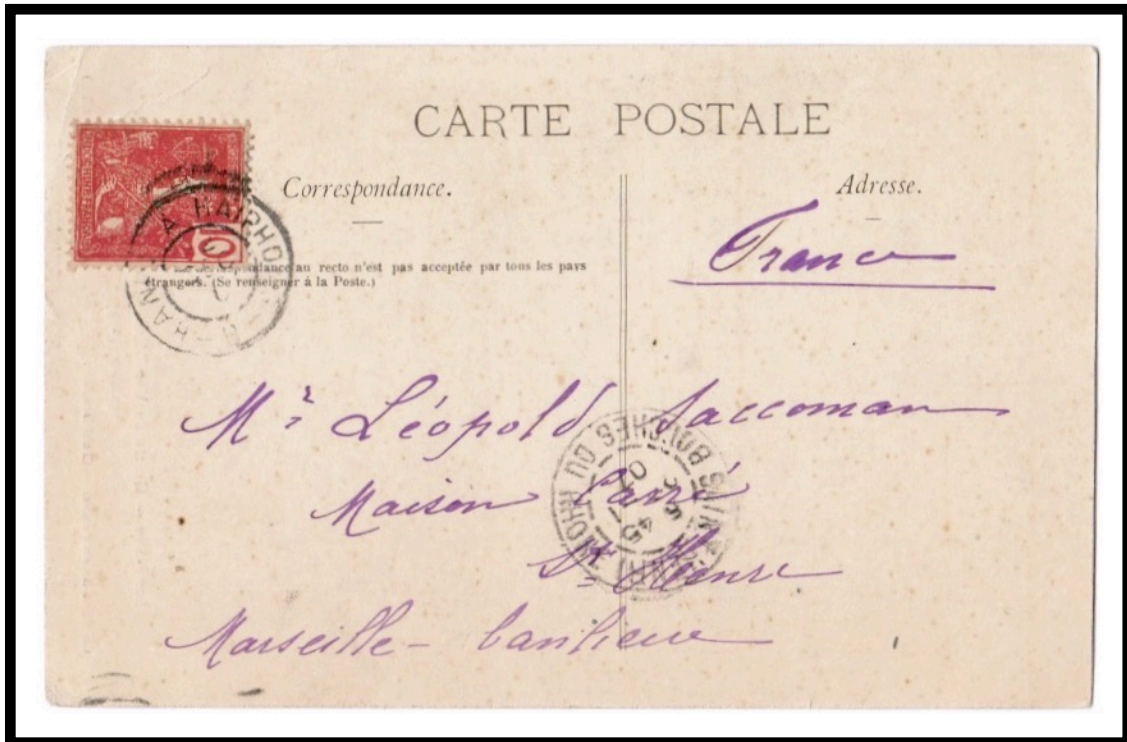 CARTE POSTALE
Correspondance.
Adresse.
France
correspondance au recto n'est pas acceptée par tous les pays
étrangers. (Se renseigner à la Poste.)
10
HAIPHO
HAN
Mr Léopold Saccoman
Maison Carré
St Henri
Marseille - banlieue
BOUCHES DU RHONE